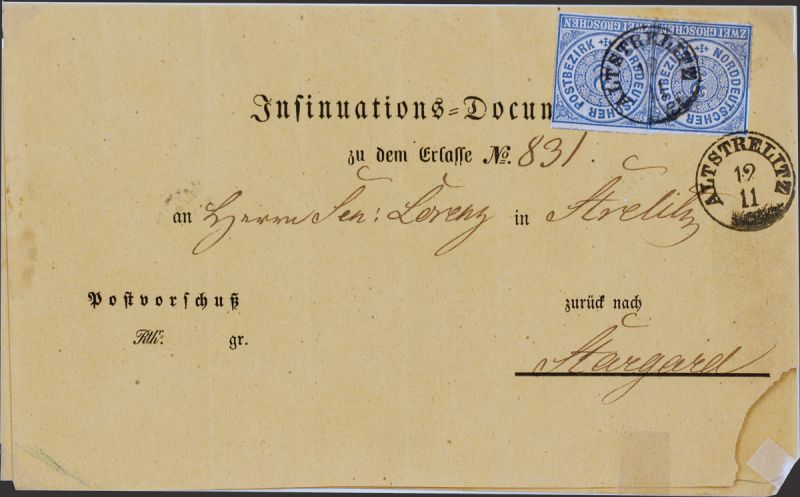 ZWEI GROSCHEN ZWEI GROSCHEN
NORDDEUTSCHER POSTBEZIRK NORDDEUTSCHER POSTBEZIRK
ALTSTRELITZ
Insinuations=Docum
zu dem Erlasse No. 831.
ALTSTRELITZ
12
11
an Herrn Sen: Lorenz in Strelitz
Postvorschuß
zurück nach
Rthr. gr.
Stargard